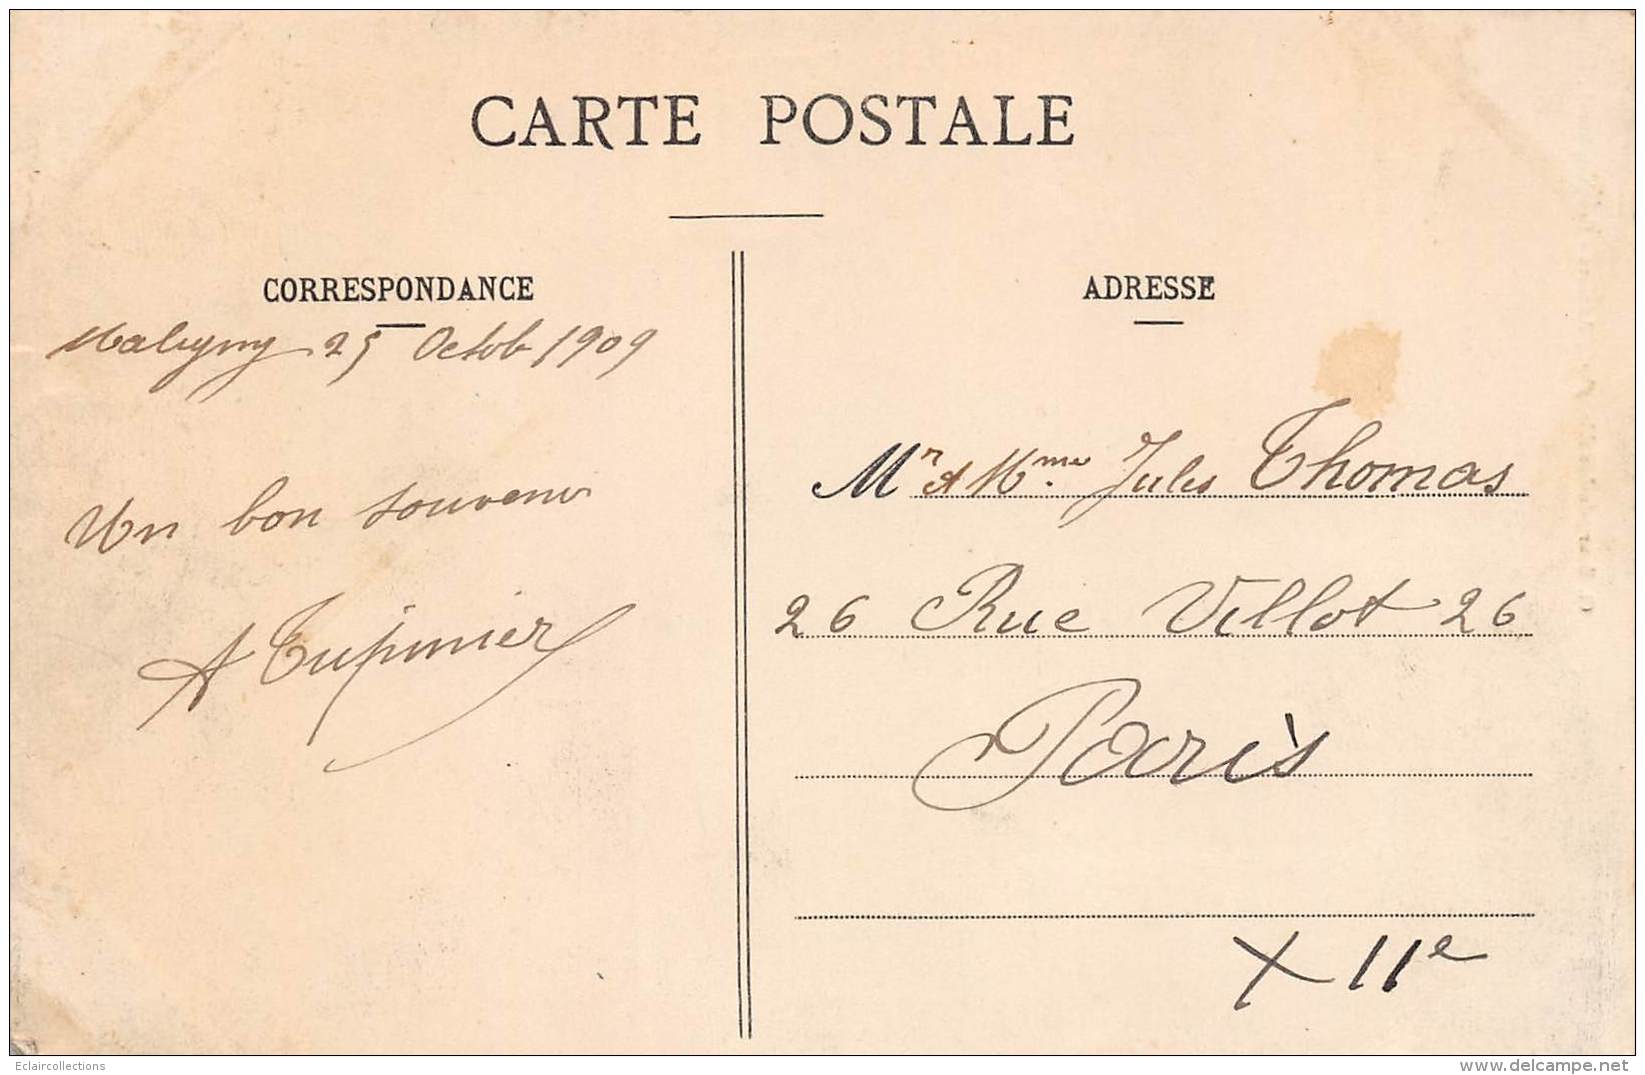 CARTE POSTALE
CORRESPONDANCE
Maligny 25 Octob 1909
Un bon souvenir
A Tupinier
ADRESSE
Mr et Mme. Jules Thomas
26 Rue Villot 26
Paris
XIIe
Eclaircollections
www.delcampe.net